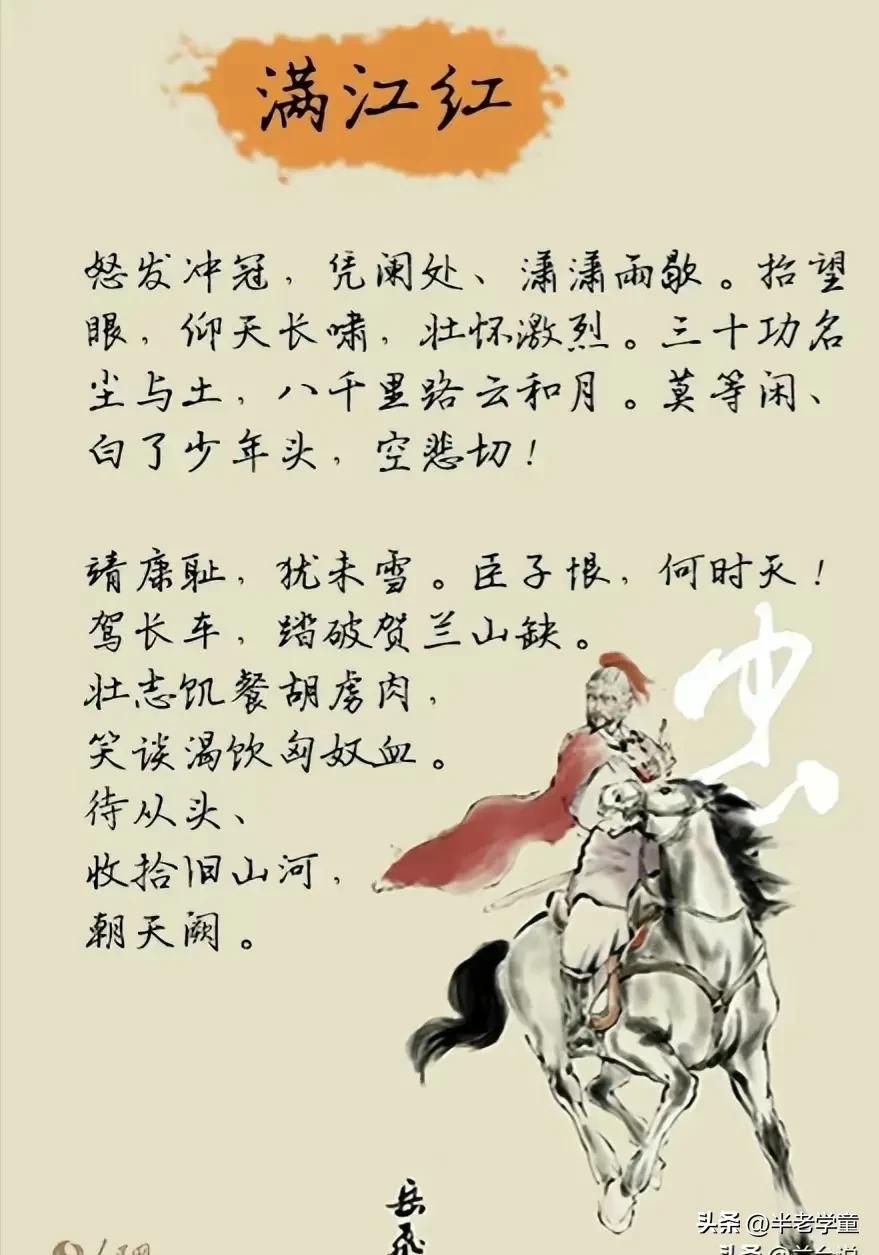 满江红
怒发冲冠，凭阑处、潇潇雨歇。抬望
眼，仰天长啸，壮怀激烈。三十功名
尘与土，八千里路云和月。莫等闲、
白了少年头，空悲切！
靖康耻，犹未雪。臣子恨，何时灭！
驾长车，踏破贺兰山缺。
壮志饥餐胡虏肉，
笑谈渴饮匈奴血。
待从头、
收拾旧山河，
朝天阙。
忠
岳飞
头条 @半老学童